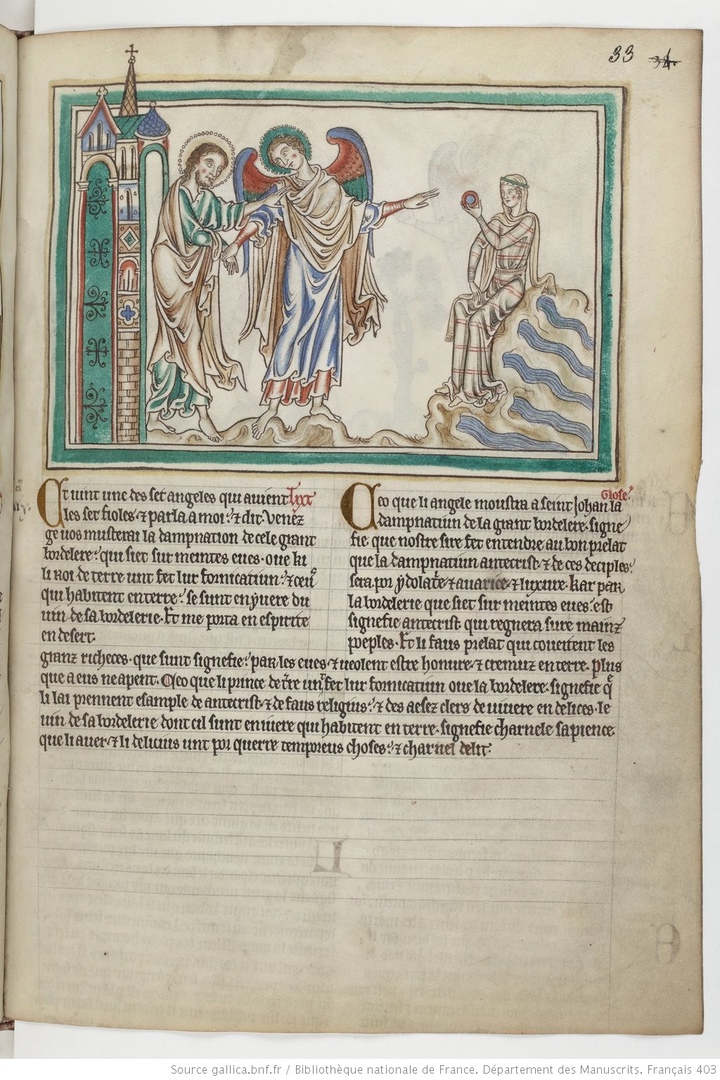 33 34
Et uint une des set angeles qui auient
Text
les set fioles ⁊ parla a moi ⁊ dit Venez
ge uos musterai la dampnation de cele grant
bordelere qui siet sur meintes eues oue ki
li Roi de terre unt fet lur fornicatiun ⁊ ceuͥ
qui habitent en terre se sunt enyuere du
uin de sa bordelerie. Et me porta en espirite
en desert.
Glose
Ceo que li angele moustra a seint Johan la
dampnatiun de la grant bordelere signe
fie que nostre sire fet entendre au bon prelat
que la dampnatiun antecrist ⁊ de ces deciples
sera por ydolatͥe ⁊ auarice ⁊ luxure. Kar par
la bordelerie que siet sur meintes eues est
signefie antecrist qui regnera sure mainz
poeples. Et li faus prelat qui coueitent les
granz richeces que sunt signefie par les eues ⁊ ueolent estre honure ⁊ cremuz en terre. Plus
que a eus ne apent. Ceo que li prince de tͥre unt fet lur fornicatiun oue la bordelere signefie qͥ
li lai prennent esample de antecrist ⁊ de faus religius ⁊ des aesez clers de uiuere en delices. le
uin de sa bordelerie dont cil sunt enyuere qui habitent en terre signefie charnele sapience
que li auer ⁊ li delicius unt por querre temporeus choses ⁊ charnel delit.
Source gallica.bnf.fr / Bibliothèque nationale de France. Département des Manuscrits. Français 403